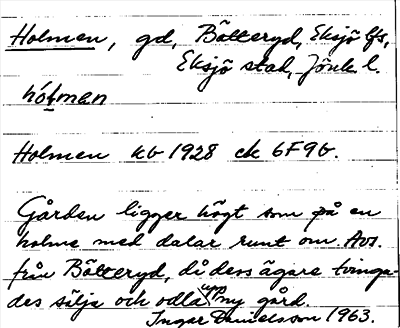 Holmen, gd, Bötteryd, Eksjö lfs,
Eksjö stad, Jönk l.
hólmen
Holmen kb 1928 ek 6F9b.
Gården ligger högt som på en
holme med dalar runt om. Avs.
från Bötteryd, då dess ägare tvinga-
des sälja och odla upp ny gård.
Ingar Danielsson 1963.